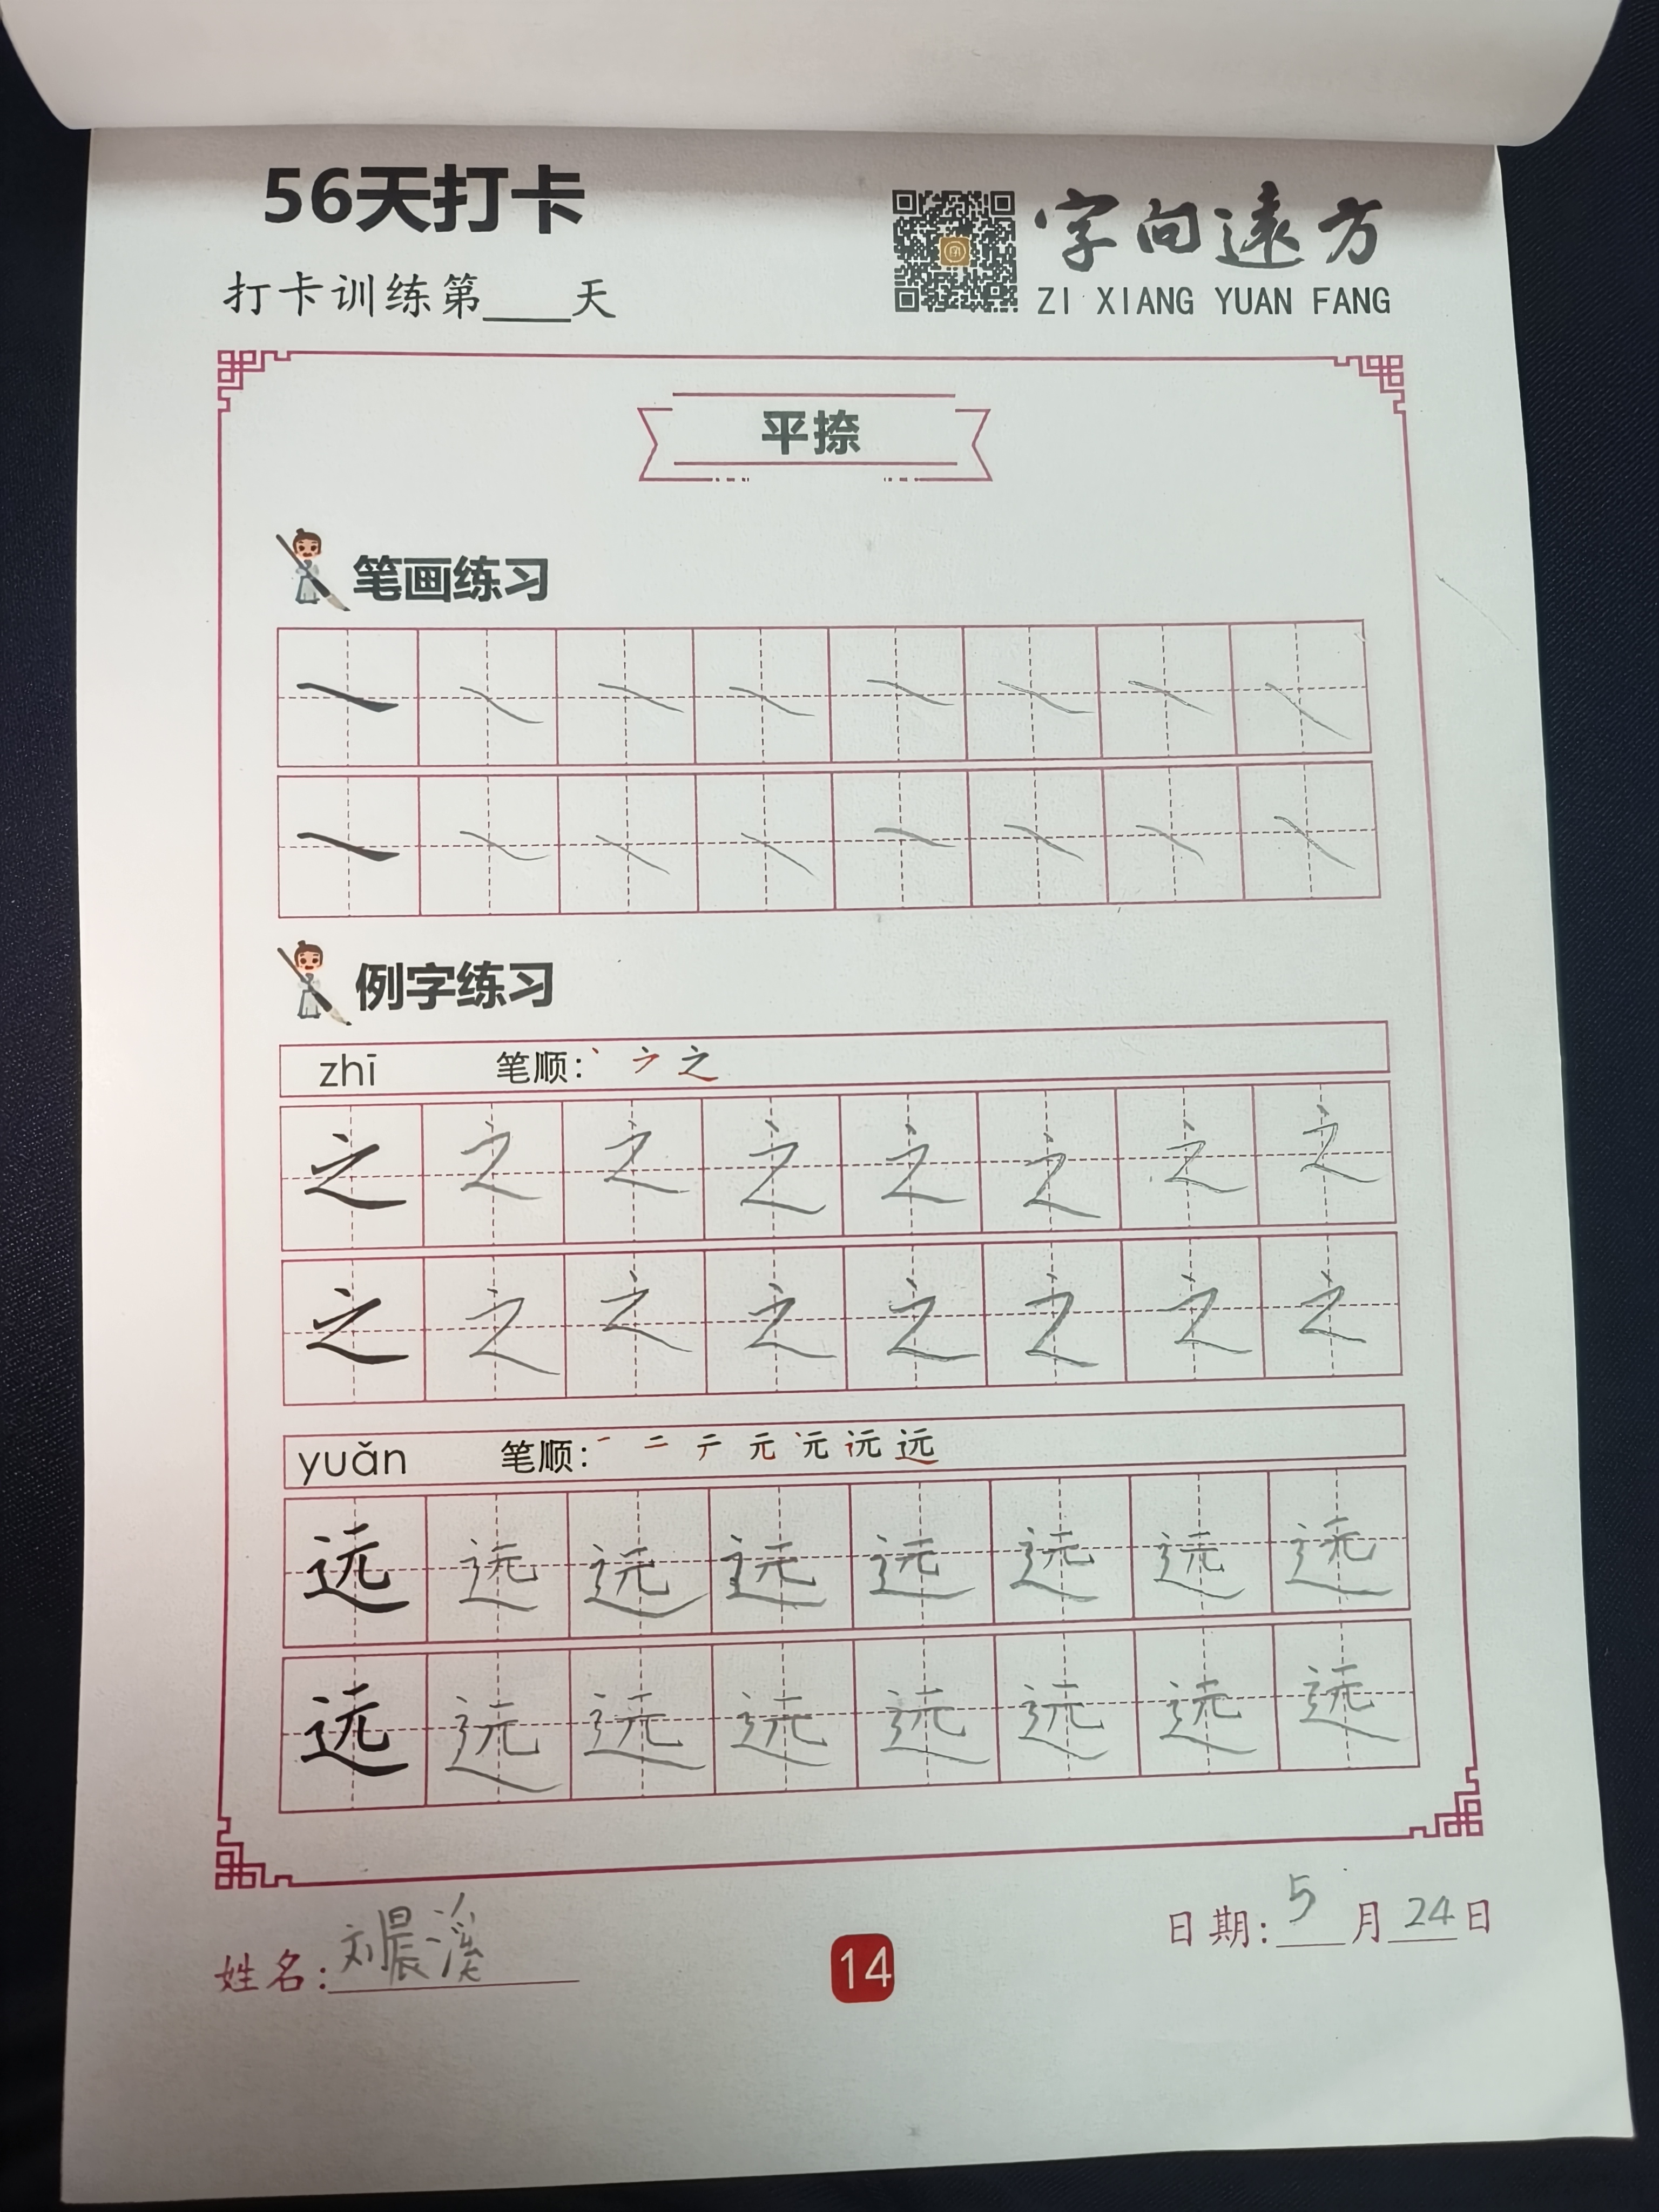 56天打卡
打卡训练第____天
字向遠方
ZI XIANG YUAN FANG
平捺
笔画练习
例字练习
zhī 笔顺: 丶 之
之 之 之 之 之 之 之 之
之 之 之 之 之 之 之 之
yuǎn 笔顺: 一 二 テ 元 远
远 远 远 远 远 远 远 远
远 远 远 远 远 远 远 远
姓名: 刘晨溪
14
日期: 5月24日